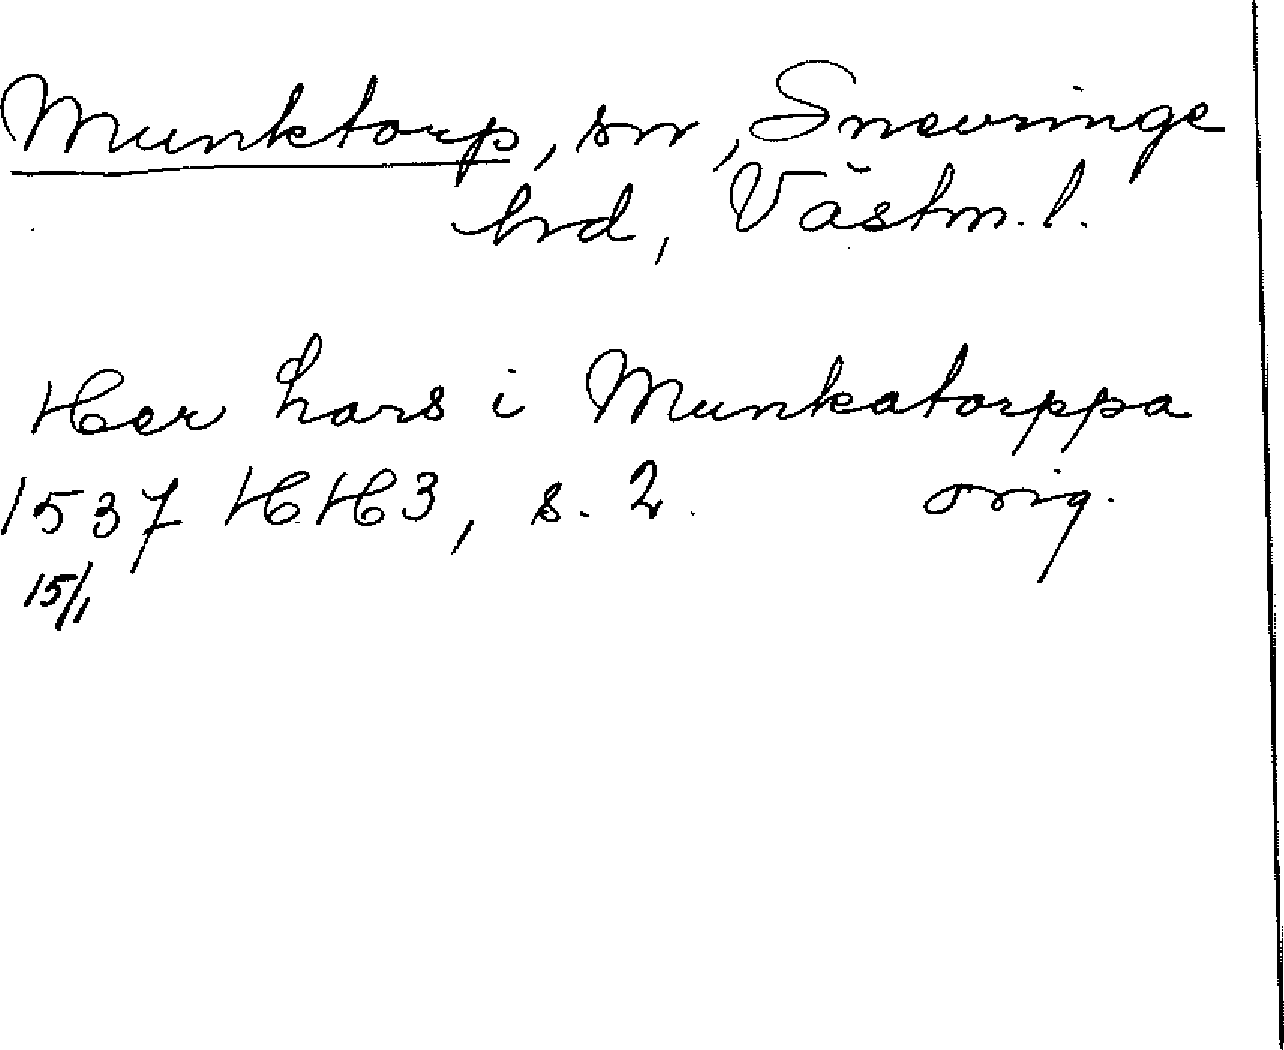 Munktorp, sn, Snevringe
hrd, Västm. l.
Her Lars i Munkatorppa
1537 HH3, s. 2. orig.
15/1